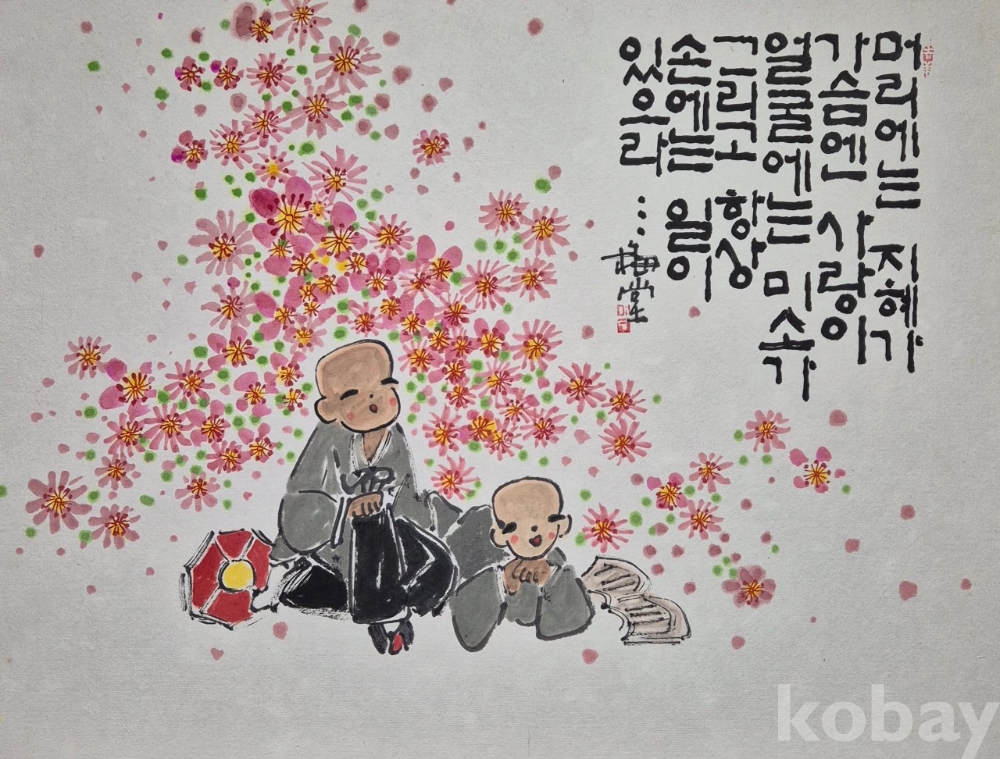 머리에는 지혜가
가슴엔 사랑이
얼굴에는 미소가
그리고 항상
손에는 일이
있으라...
梅堂
kobay